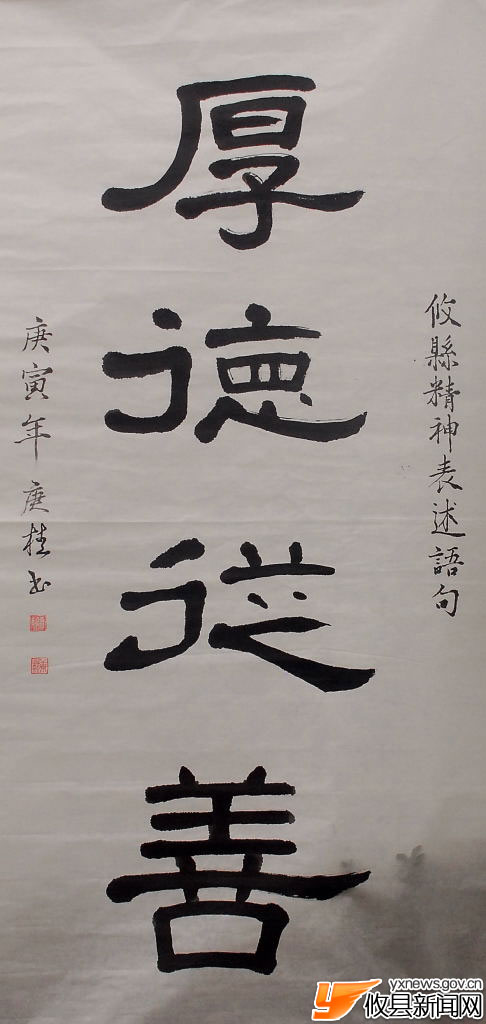 攸縣精神表述語句
厚德從善
庚寅年 庚桂书
yxnews.gov.cn
攸县新闻网